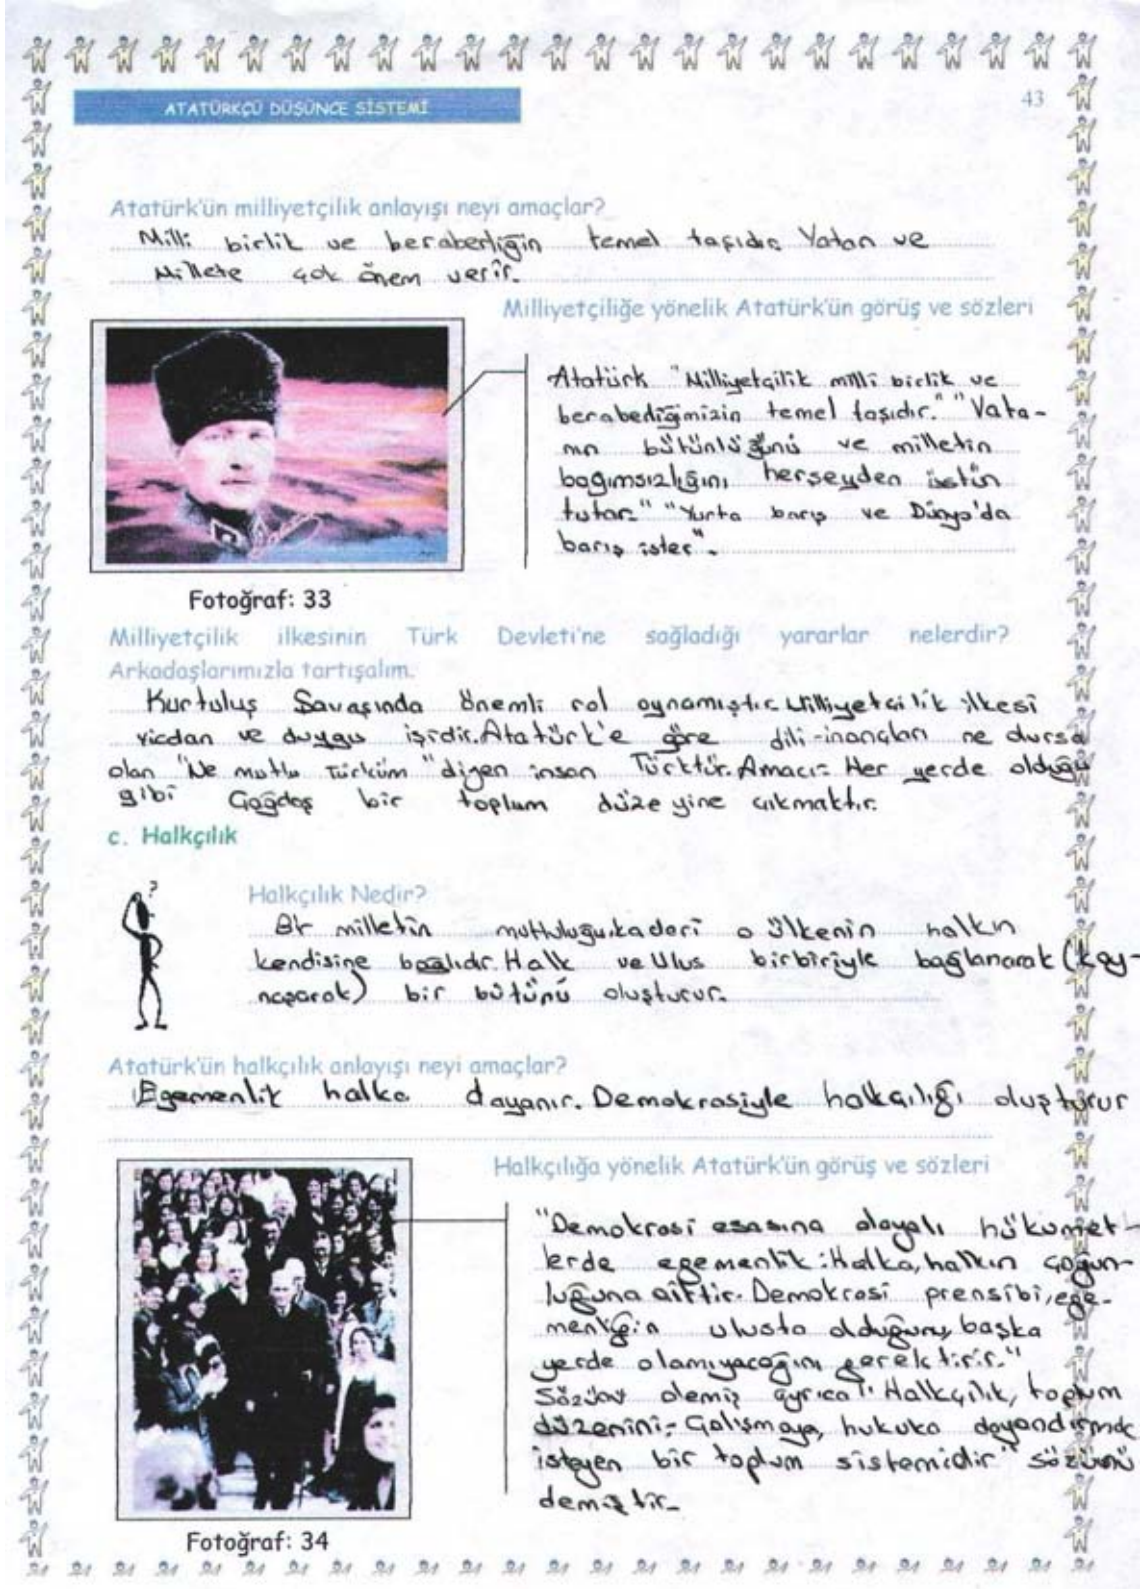 ATATÜRKÇÜ DÜŞÜNCE SİSTEMİ
43
Atatürk'ün milliyetçilik anlayışı neyi amaçlar?
Milli birlik ve beraberliğin temel taşıdır. Vatan ve
Millete çok önem verir.
Milliyetçiliğe yönelik Atatürk'ün görüş ve sözleri
Atatürk "Milliyetçilik milli birlik ve
beraberliğimizin temel taşıdır." "Vata-
nın bütünlüğünü ve milletin
bağımsızlığını herseyden üstün
tutar." "Yurta barış ve Dünya'da
barış ister".
Fotoğraf: 33
Milliyetçilik ilkesinin Türk Devleti'ne sağladığı yararlar nelerdir?
Arkadaşlarımızla tartışalım.
Kurtuluş Savaşında önemli rol oynamıştır. Milliyetçilik ilkesi
vicdan ve duygu işidir. Atatürk'e göre dili-inançları ne olursa
olsn "Ne mutlu Türküm" diyen insan Türktür. Amacı: Her yerde olduğu
gibi Çağdaş bir toplum düzeyine çıkmaktır.
c. Halkçılık
?
Halkçılık Nedir?
Bir milletin mutluluğu, kaderi o ülkenin halkın
kendisine bağlıdır. Halk ve Ulus birbiriyle bağlanarak (kay-
naşarak) bir bütünü oluşturur.
Atatürk'ün halkçılık anlayışı neyi amaçlar?
Egemenlik halka dayanır. Demokrasiyle halkçılığı oluşturur
Halkçılığa yönelik Atatürk'ün görüş ve sözleri
"Demokrasi esasına dayalı hükümet-
lerde egemenlik: Halka, halkın çoğun-
luğuna aittir. Demokrasi prensibi, ege-
menliğin ulusta olduğunu, başka
yerde olamıyacağını gerektirir."
Sözünü demiş ayrıca "Halkçılık, toplum
düzenini; Çalışmaya, hukuka dayandırmak
isteyen bir toplum sistemidir" sözünü
demiştir.
Fotoğraf: 34